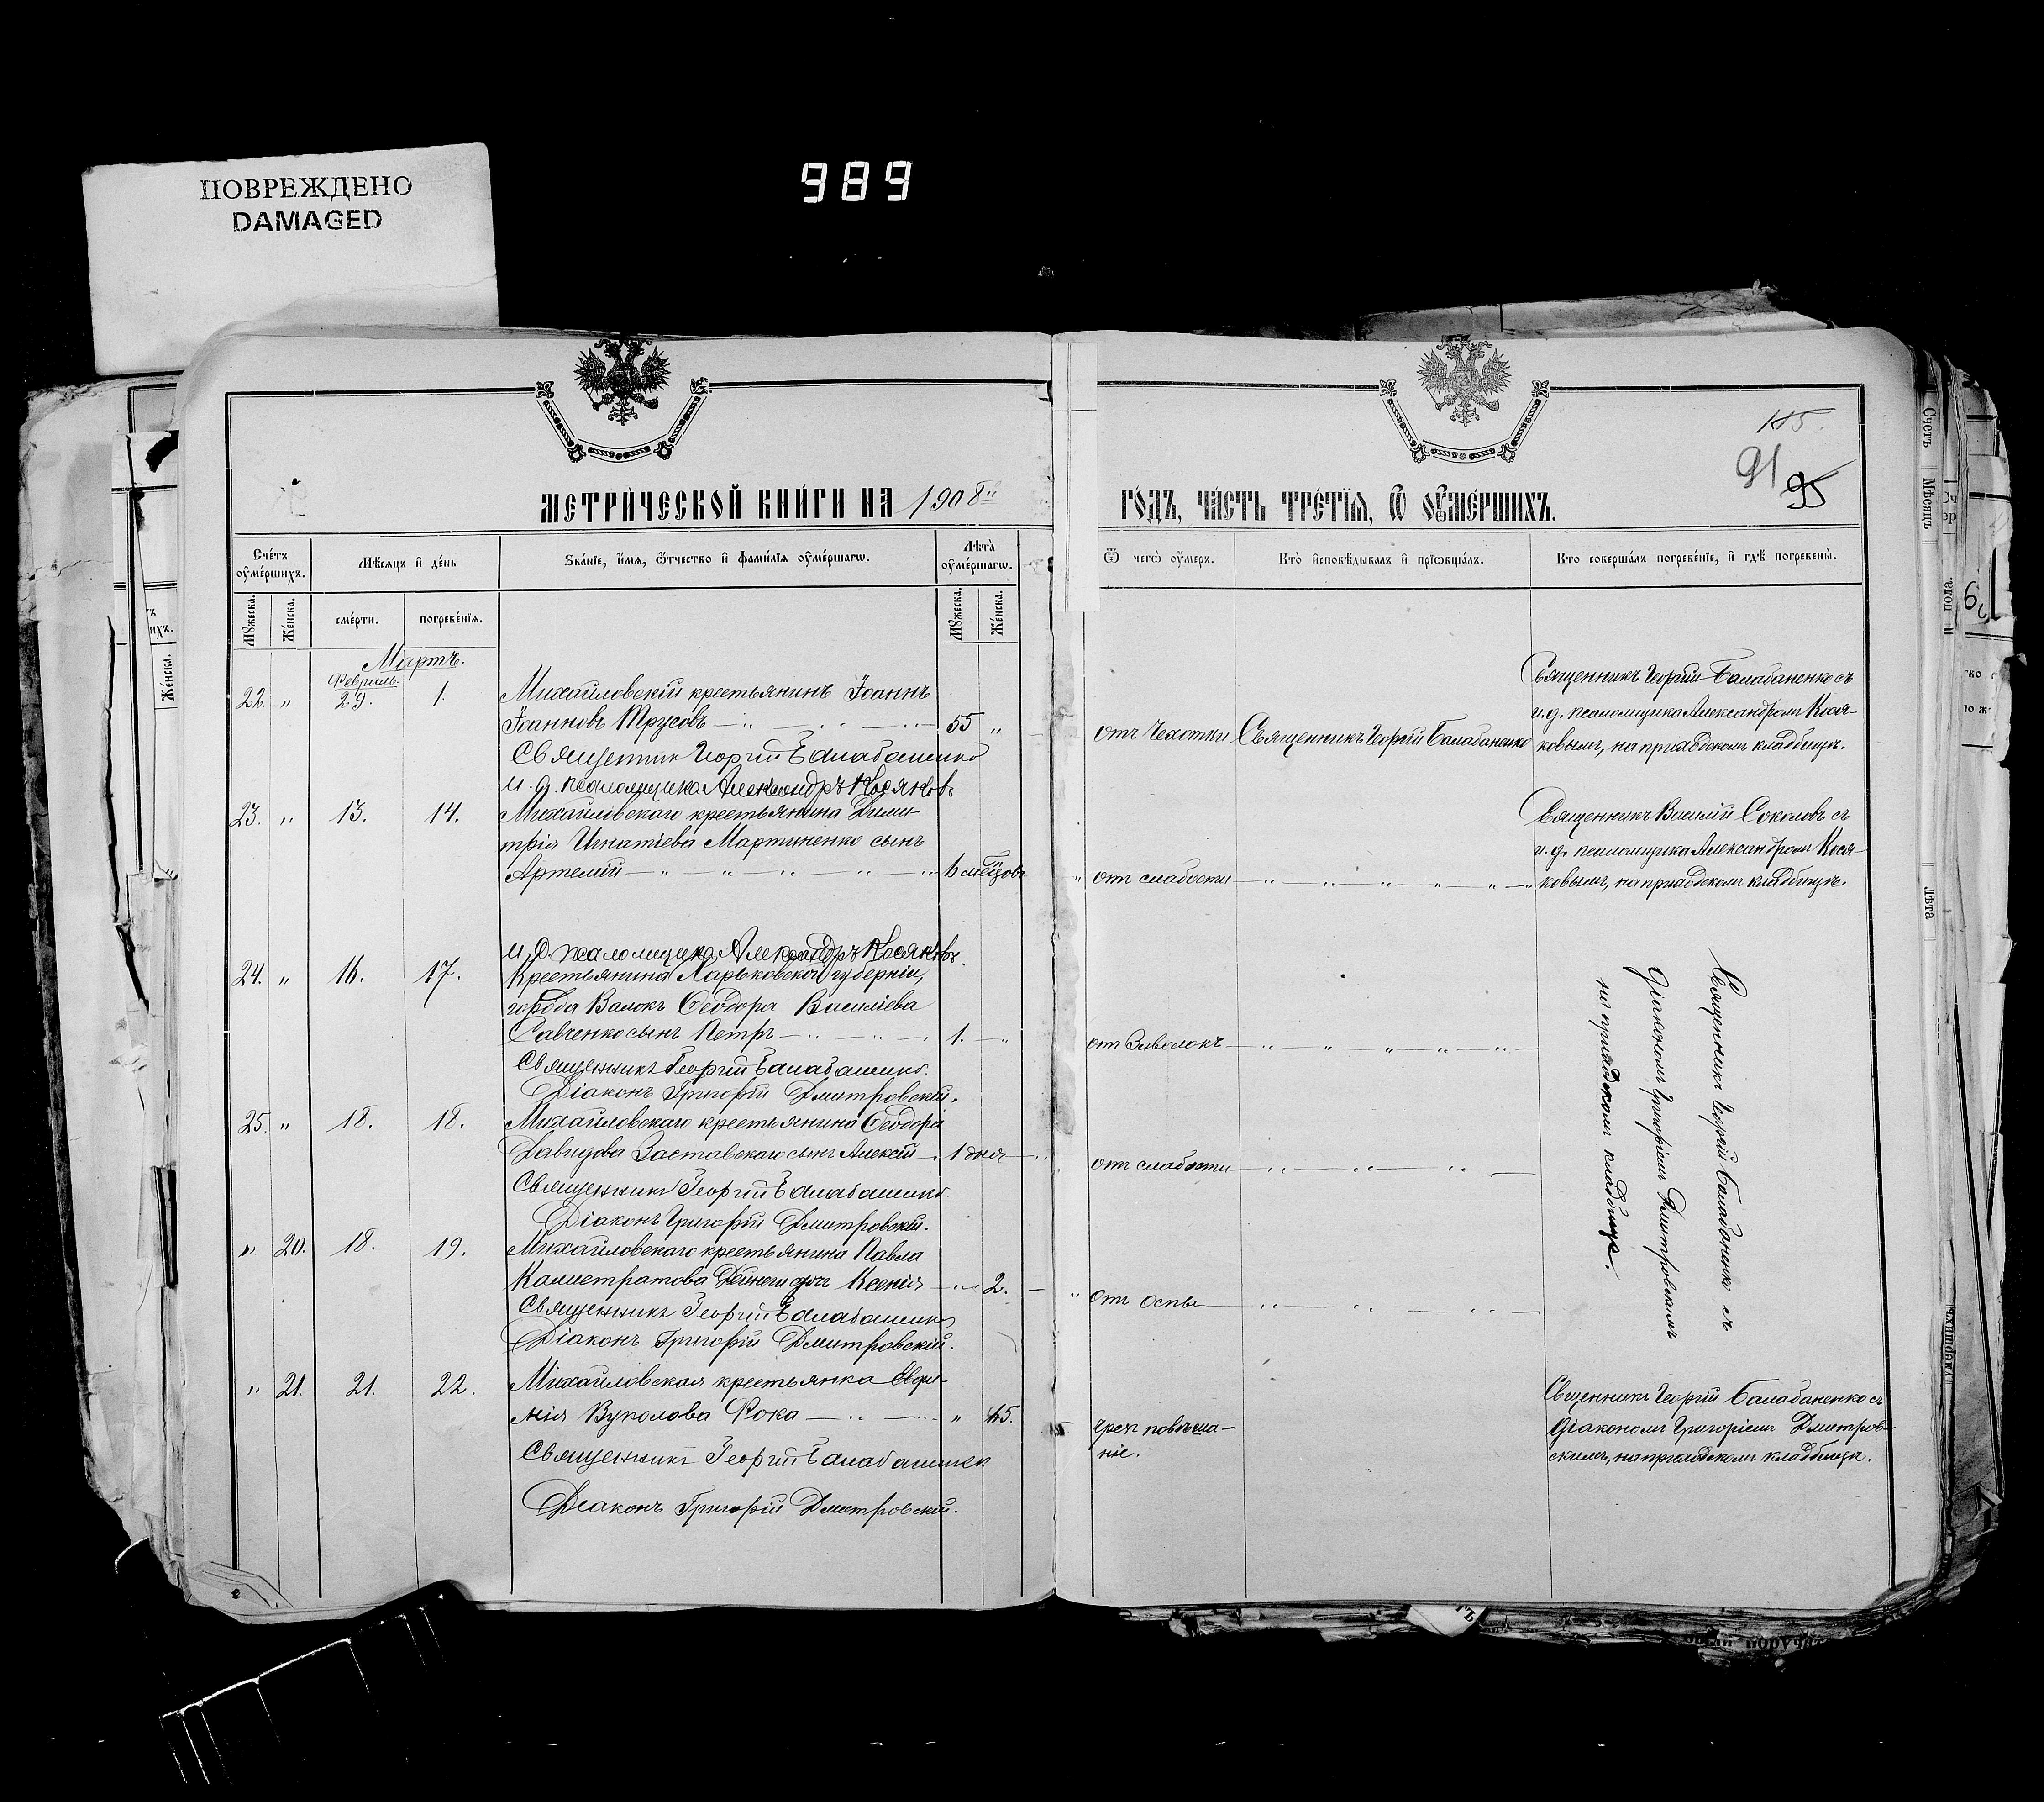 ПОВРЕЖДЕНО
DAMAGED
989
МЕТРИЧЕСКОЙ КНИГИ НА 1908й
Счетъ оумершихъ.
Мѣсяцъ и день
Званіе, имя, отчество и фамилія оумершагѡ.
Лѣта оумершагѡ.
Мужеска.
Женска.
смерти.
погребенія.
Мужеска.
Женска.
Мартъ.
Февраль.
22. " 29. 1. Михайловскій крестьянинъ Іоаннъ
Іоанновъ Трусовъ 55 "
Священникъ Георгій Балабаненко
и. д. псаломщика Александръ Косяковъ
23. " 13. 14. Михайловскаго крестьянина Дими-
трія Игнатіева Мартиненко сынъ
Артемій 6 мѣсяцовъ
и. д. псаломщика Александръ Косяковъ.
24. " 16. 17. Крестьянина Харьковской губерніи,
города Валокъ Ѳеодора Василіева
Савченко сынъ Петръ 1. "
Священникъ Георгій Балабаненко.
Діаконъ Григорій Дмитровскій.
25. " 18. 18. Михайловскаго крестьянина Ѳеодора
Давидова Заставскаго сынъ Алексій 1 дня
Священникъ Георгій Балабаненко.
Діаконъ Григорій Дмитровскій.
" 20. 18. 19. Михайловскаго крестьянина Павла
Калистратова Дейнеги дочь Ксенія 2.
Священникъ Георгій Балабаненко
Діаконъ Григорій Дмитровскій.
" 21. 21. 22. Михайловская крестьянка Евфи-
мія Вуколова Фока " 45.
Священникъ Георгій Балабаненко
Діаконъ Григорій Дмитровскій.
ГОДЪ, ЧАСТЬ ТРЕТІЯ, Ѿ ОУМЕРШИХЪ.
91 95
Ѿ чегѡ оумеръ.
Кто исповѣдывалъ и пріѡбщалъ.
Кто совершалъ погребеніе, и гдѣ погребены.
Священникъ Георгій Балабаненко съ
и. д. псаломщика Александромъ Кося-
отъ Чахотки Священникъ Георгій Балабаненко ковымъ, на приходскомъ кладбищѣ.
Священникъ Василій Соколовъ съ
и. д. псаломщика Александромъ Кося-
" отъ слабости ковымъ, на приходскомъ кладбищѣ.
отъ Заволокъ
отъ слабости
" отъ оспы
Священникъ Георгій Балабаненко съ
діакономъ Григоріемъ Дмитровскимъ
на приходскомъ кладбищѣ.
Священникъ Георгій Балабаненко съ
чрезъ повѣша- діакономъ Григоріемъ Дмитров-
ніе. скимъ, на приходскомъ кладбищѣ.
Счетъ
Мѣсяцъ
Лѣта